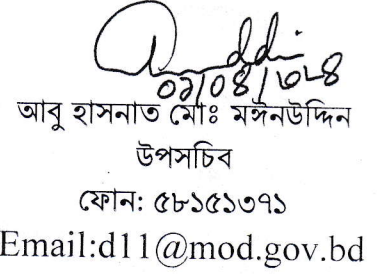 আবু হাসনাত মোঃ মঈনউদ্দিন
উপসচিব
ফোন: ৫৮১৫১৩৭১
Email:d11@mod.gov.bd